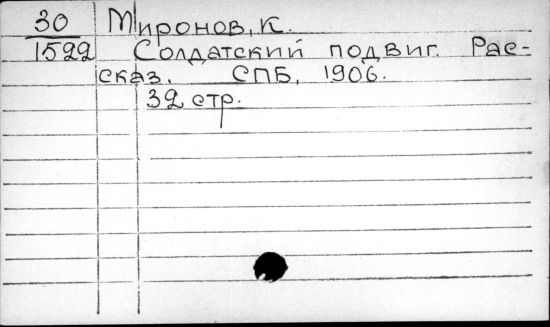 30 Миронов, К.
1522 Солдатский подвиг. Рас-
сказ. СПБ, 1906.
32 стр.